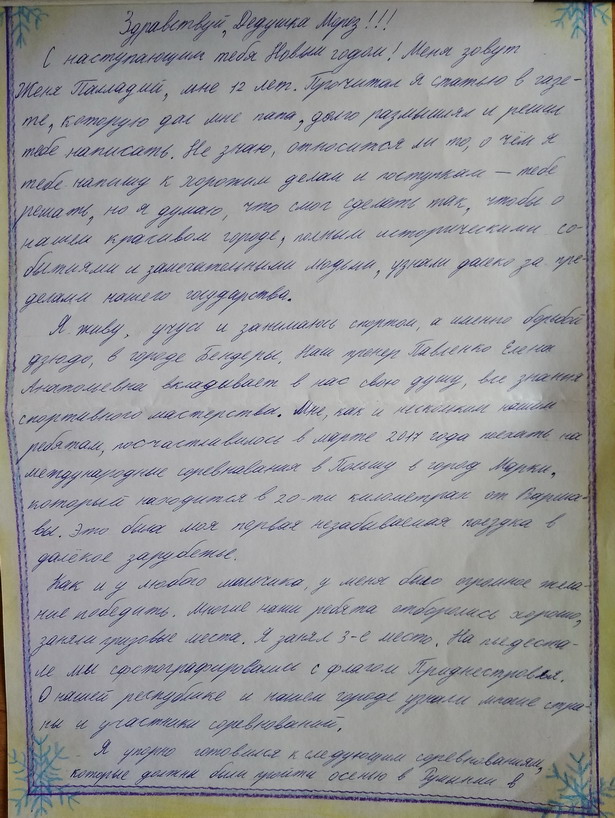 Здравствуй, Дедушка Мороз!!!
С наступающим тебя Новым годом! Меня зовут
Женя Палладий, мне 12 лет. Прочитал я статью в газе-
те, которую дал мне папа, долго размышлял и решил
тебе написать. Не знаю, относится ли то, о чём я
тебе напишу к хорошим делам и поступкам – тебе
решать, но я думаю, что смог сделать так, чтобы о
нашем красивом городе, полным историческими со-
бытиями и замечательными людьми, узнали далеко за пре-
делами нашего государства.
Я живу, учусь и занимаюсь спортом, а именно борьбой
дзюдо, в городе Бендеры. Наш тренер Павленко Елена
Анатольевна вкладывает в нас свою душу, все знания
спортивного мастерства. Мне, как и нескольким нашим
ребятам, посчастливилось в марте 2017 года поехать на
международные соревнования в Польшу в город Марки,
который находится в 20-ти километрах от Варша-
вы. Это была моя первая незабываемая поездка в
далёкое зарубежье.
Как и у любого мальчика, у меня было огромное жела-
ние победить. Многие наши ребята отборолись хорошо,
заняли призовые места. Я занял 3-е место. На пьедеста-
ле мы сфотографировались с флагом Приднестровья.
О нашей республике и нашем городе узнали многие стра-
ны и участники соревнований.
Я упорно готовился к следующим соревнованиям,
которые должны были пройти осенью в Румынии в